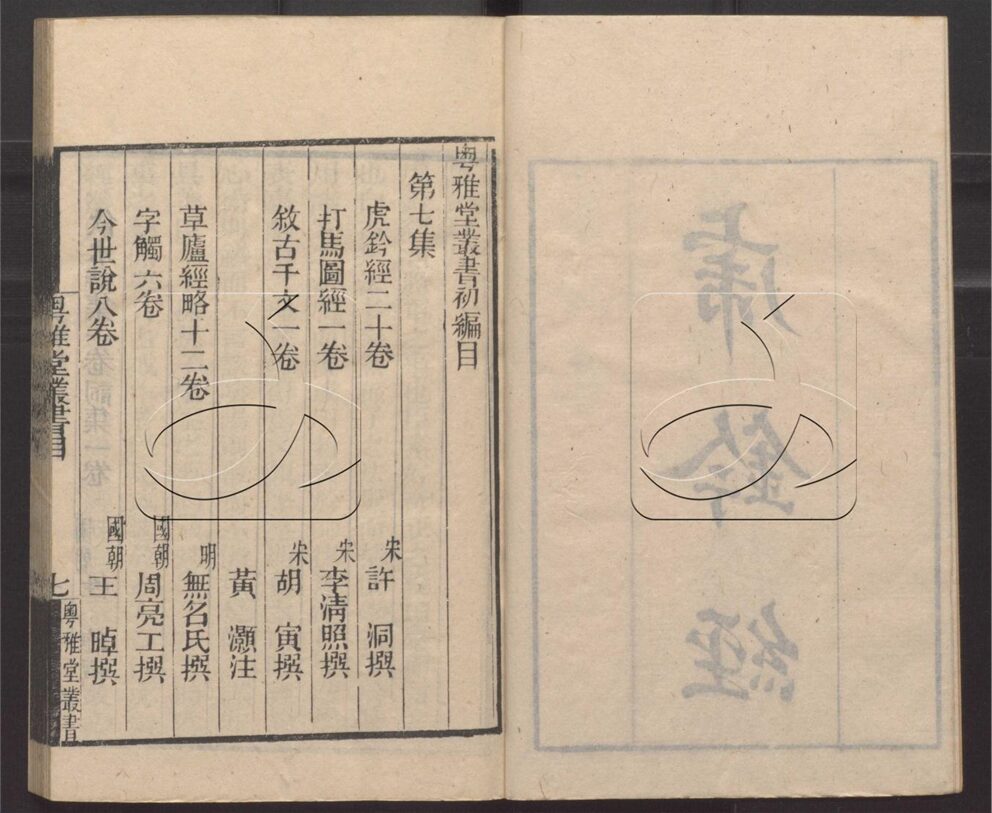 虎鈐經
粵雅堂叢書初編目
第七集
虎鈐經二十卷　宋許　洞撰
打馬圖經一卷　宋李清照撰
敘古千文一卷　宋胡　寅撰
黃　灝注
草廬經略十二卷　明無名氏撰
字觸六卷　國朝周亮工撰
今世說八卷　國朝王　晫撰
粵雅堂叢書目　七　粵雅堂叢書